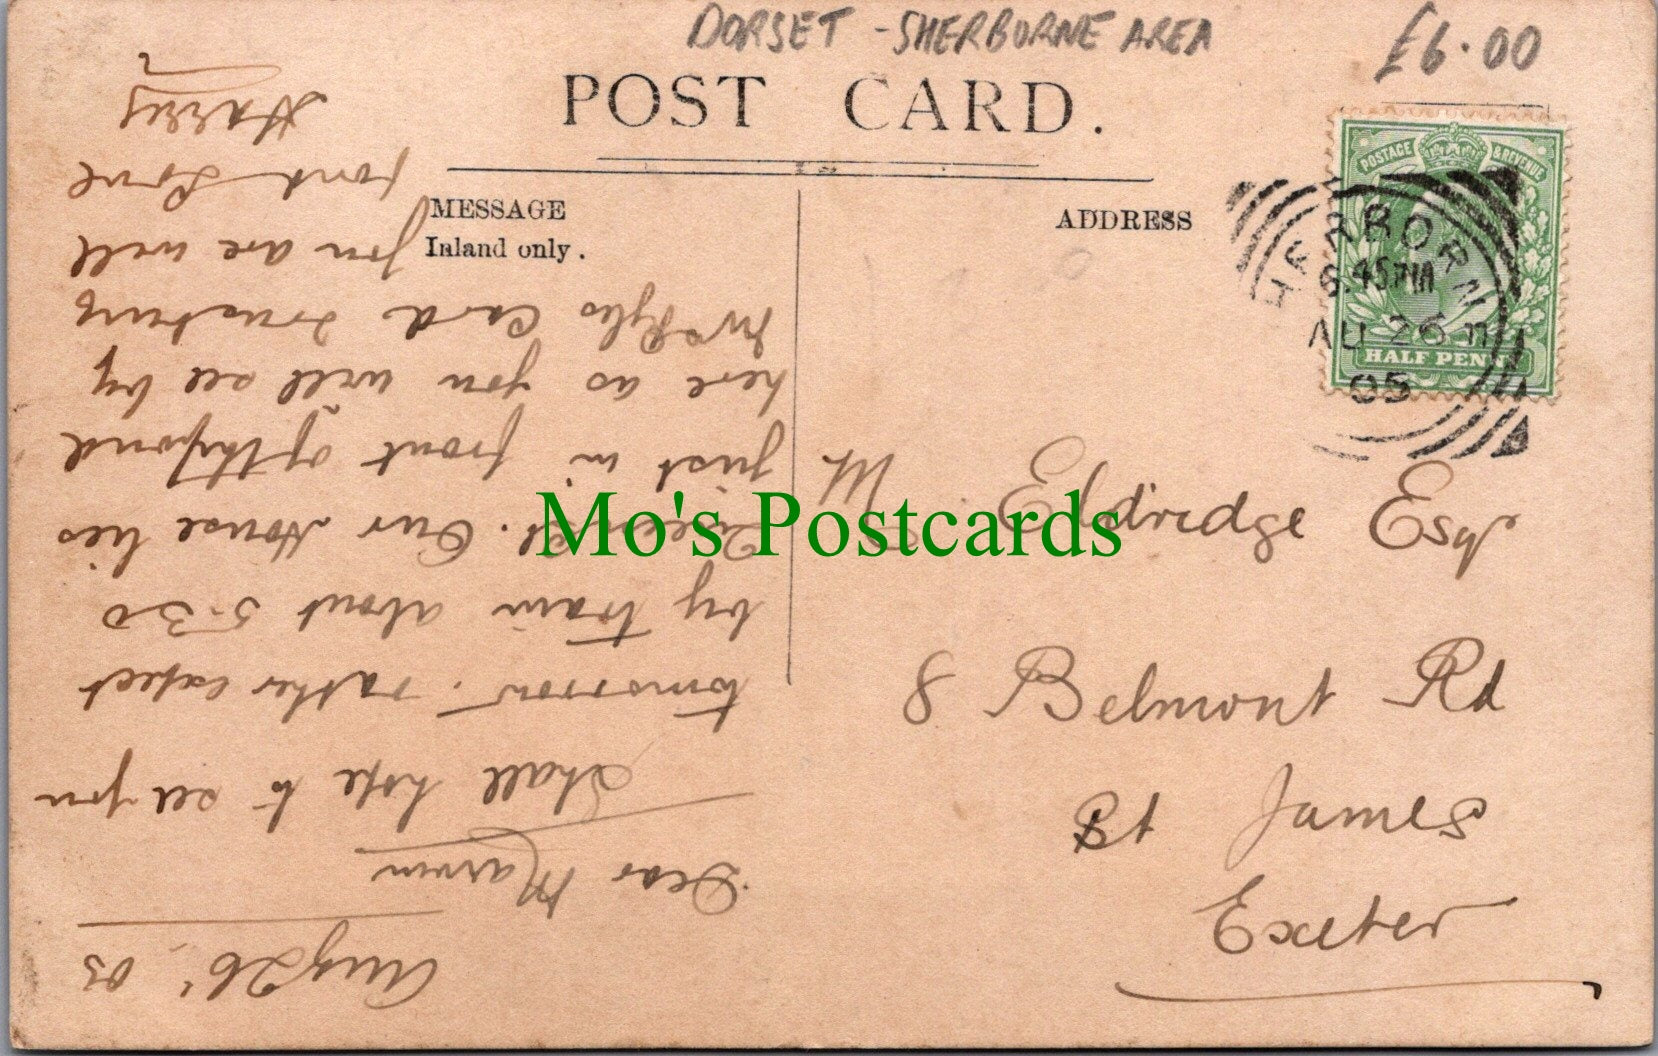 DORSET - SHERBORNE AREA
£6.00
POST CARD.
MESSAGE
Inland only.
ADDRESS
POSTAGE & REVENUE
HALF PENNY
SHERBORN
6.45PM
AU 26
05
Mo's Postcards
Eldridge Esq
8 Belmont Rd
St James
Exeter
Aug 26, 05
Dear
Shall hope to see you
tomorrow. rather expect
by train about 5-30
Our House lies
just in front of the pond
here as you will see by
card trusting
you are well
fond Love
Harry